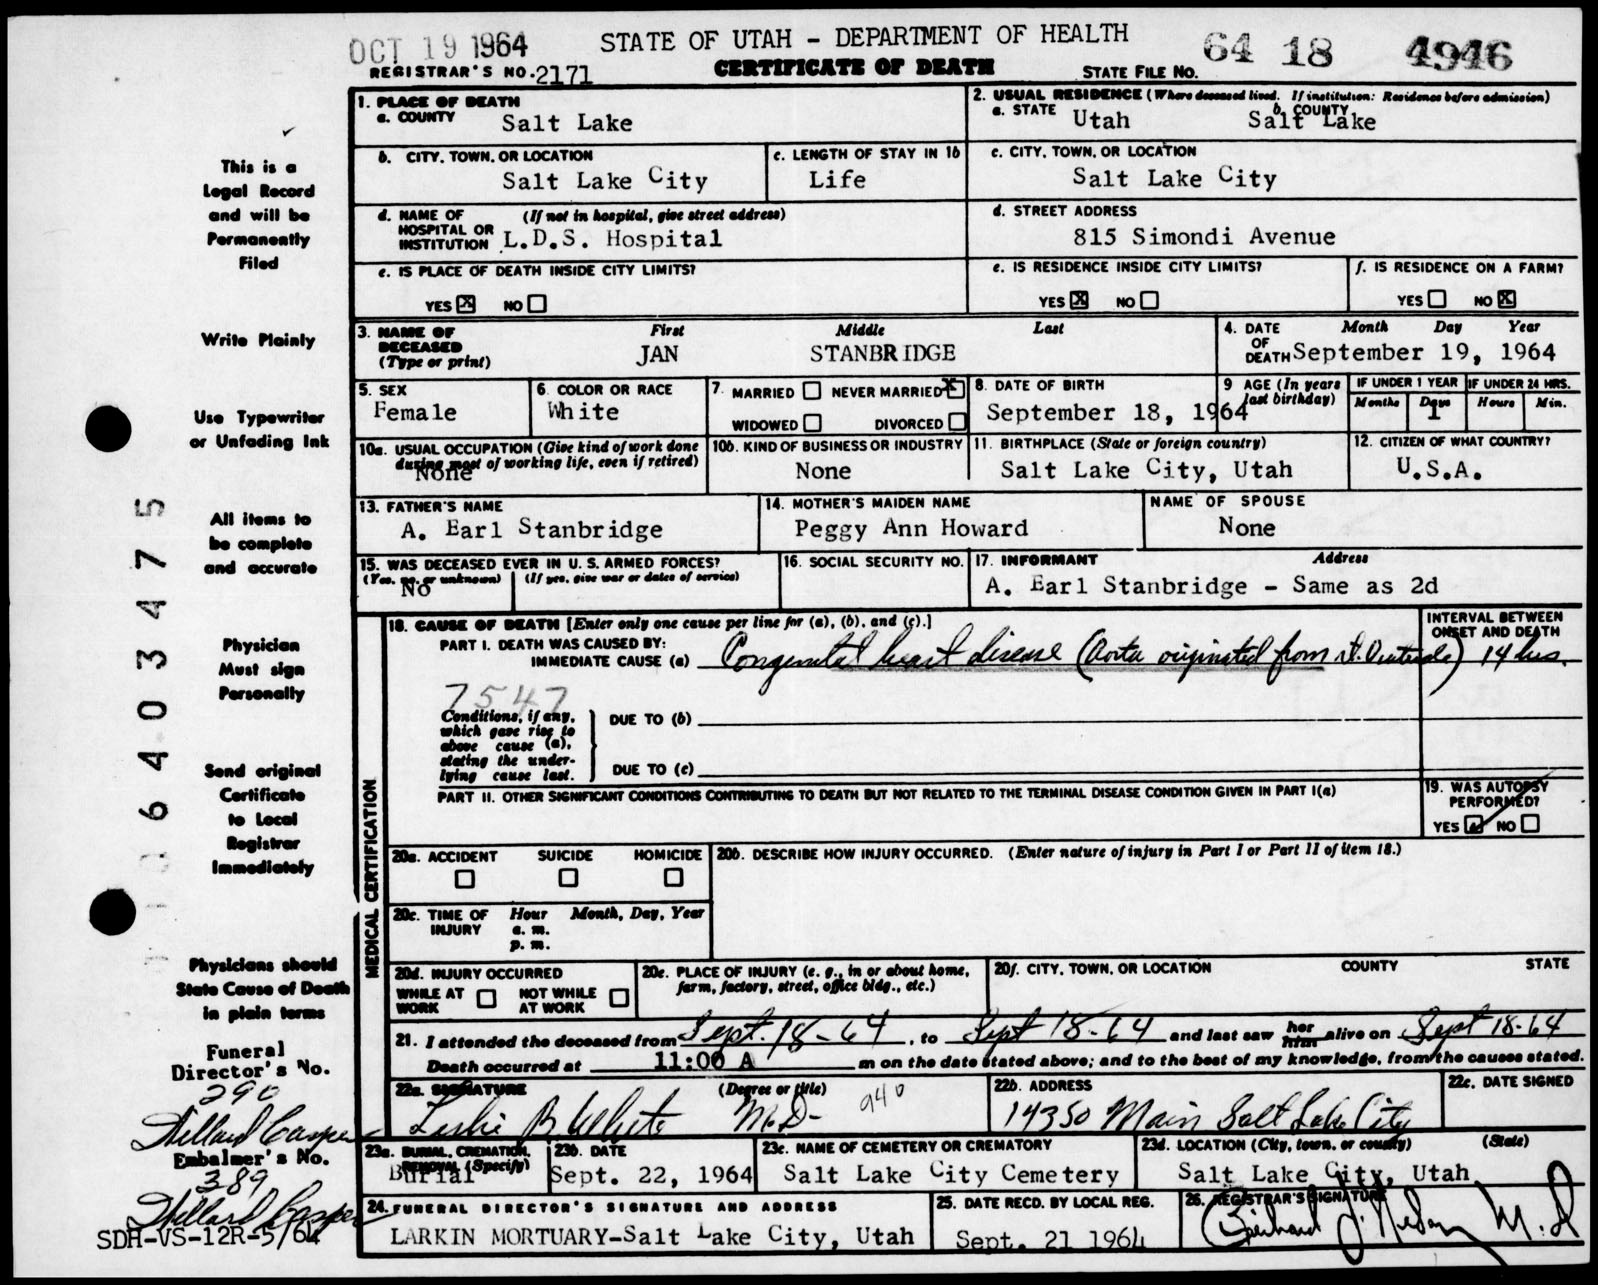 OCT 19 1964 STATE OF UTAH - DEPARTMENT OF HEALTH 64 18 4946
REGISTRAR'S NO. 2171 CERTIFICATE OF DEATH STATE FILE NO.
1. PLACE OF DEATH
a. COUNTY Salt Lake
2. USUAL RESIDENCE (Where deceased lived. If institution: Residence before admission)
a. STATE Utah b. COUNTY Salt Lake
b. CITY, TOWN, OR LOCATION Salt Lake City
c. LENGTH OF STAY IN 1b Life
c. CITY, TOWN, OR LOCATION Salt Lake City
d. NAME OF HOSPITAL OR INSTITUTION (If not in hospital, give street address) L.D.S. Hospital
d. STREET ADDRESS 815 Simondi Avenue
e. IS PLACE OF DEATH INSIDE CITY LIMITS?
YES X NO
e. IS RESIDENCE INSIDE CITY LIMITS?
YES X NO
f. IS RESIDENCE ON A FARM?
YES NO X
3. NAME OF DECEASED (Type or print) First Middle Last
JAN STANBRIDGE
4. DATE OF DEATH Month Day Year
September 19, 1964
5. SEX Female
6. COLOR OR RACE White
7. MARRIED NEVER MARRIED X
WIDOWED DIVORCED
8. DATE OF BIRTH September 18, 1964
9 AGE (In years last birthday)
IF UNDER 1 YEAR Months Days 1
IF UNDER 24 HRS. Hours Min.
10a. USUAL OCCUPATION (Give kind of work done during most of working life, even if retired) None
10b. KIND OF BUSINESS OR INDUSTRY None
11. BIRTHPLACE (State or foreign country) Salt Lake City, Utah
12. CITIZEN OF WHAT COUNTRY? U.S.A.
13. FATHER'S NAME A. Earl Stanbridge
14. MOTHER'S MAIDEN NAME Peggy Ann Howard
NAME OF SPOUSE None
15. WAS DECEASED EVER IN U. S. ARMED FORCES?
(Yes, no, or unknown) (If yes, give war or dates of service)
No
16. SOCIAL SECURITY NO.
17. INFORMANT Address
A. Earl Stanbridge - Same as 2d
MEDICAL CERTIFICATION
18. CAUSE OF DEATH [Enter only one cause per line for (a), (b), and (c).]
INTERVAL BETWEEN ONSET AND DEATH
PART I. DEATH WAS CAUSED BY:
IMMEDIATE CAUSE (a) Congenital heart disease (Aorta originated from rt. Ventricle) 14 hrs.
7547
Conditions, if any, which gave rise to above cause (a), stating the underlying cause last.
DUE TO (b)
DUE TO (c)
PART II. OTHER SIGNIFICANT CONDITIONS CONTRIBUTING TO DEATH BUT NOT RELATED TO THE TERMINAL DISEASE CONDITION GIVEN IN PART I(a)
19. WAS AUTOPSY PERFORMED?
YES NO
20a. ACCIDENT SUICIDE HOMICIDE
20b. DESCRIBE HOW INJURY OCCURRED. (Enter nature of injury in Part I or Part II of item 18.)
20c. TIME OF INJURY Hour Month, Day, Year
a. m.
p. m.
20d. INJURY OCCURRED
WHILE AT WORK NOT WHILE AT WORK
20e. PLACE OF INJURY (e. g., in or about home, farm, factory, street, office bldg., etc.)
20f. CITY, TOWN, OR LOCATION COUNTY STATE
21. I attended the deceased from Sept. 18-64, to Sept 18-64 and last saw her him alive on Sept 18-64
Death occurred at 11:00 A m on the date stated above; and to the best of my knowledge, from the causes stated.
22a. SIGNATURE (Degree or title)
Leslie B White M.D- 940
22b. ADDRESS
14350 Main Salt Lake City
22c. DATE SIGNED
23a. BURIAL, CREMATION, REMOVAL (Specify) Burial
23b. DATE Sept. 22, 1964
23c. NAME OF CEMETERY OR CREMATORY Salt Lake City Cemetery
23d. LOCATION (City, town, or county) (State)
Salt Lake City, Utah
24. FUNERAL DIRECTOR'S SIGNATURE AND ADDRESS
LARKIN MORTUARY-Salt Lake City, Utah
25. DATE RECD. BY LOCAL REG.
Sept. 21 1964
26. REGISTRAR'S SIGNATURE
M.D
This is a
Legal Record
and will be
Permanently
Filed
Write Plainly
Use Typewriter
or Unfading Ink
All items to
be complete
and accurate
Physician
Must sign
Personally
Send original
Certificate
to Local
Registrar
Immediately
Physicians should
State Cause of Death
in plain terms
Funeral
Director's No.
290
Willard Casper
Embalmer's No.
389
Willard Casper
SDH-VS-12R-5/64
6403475